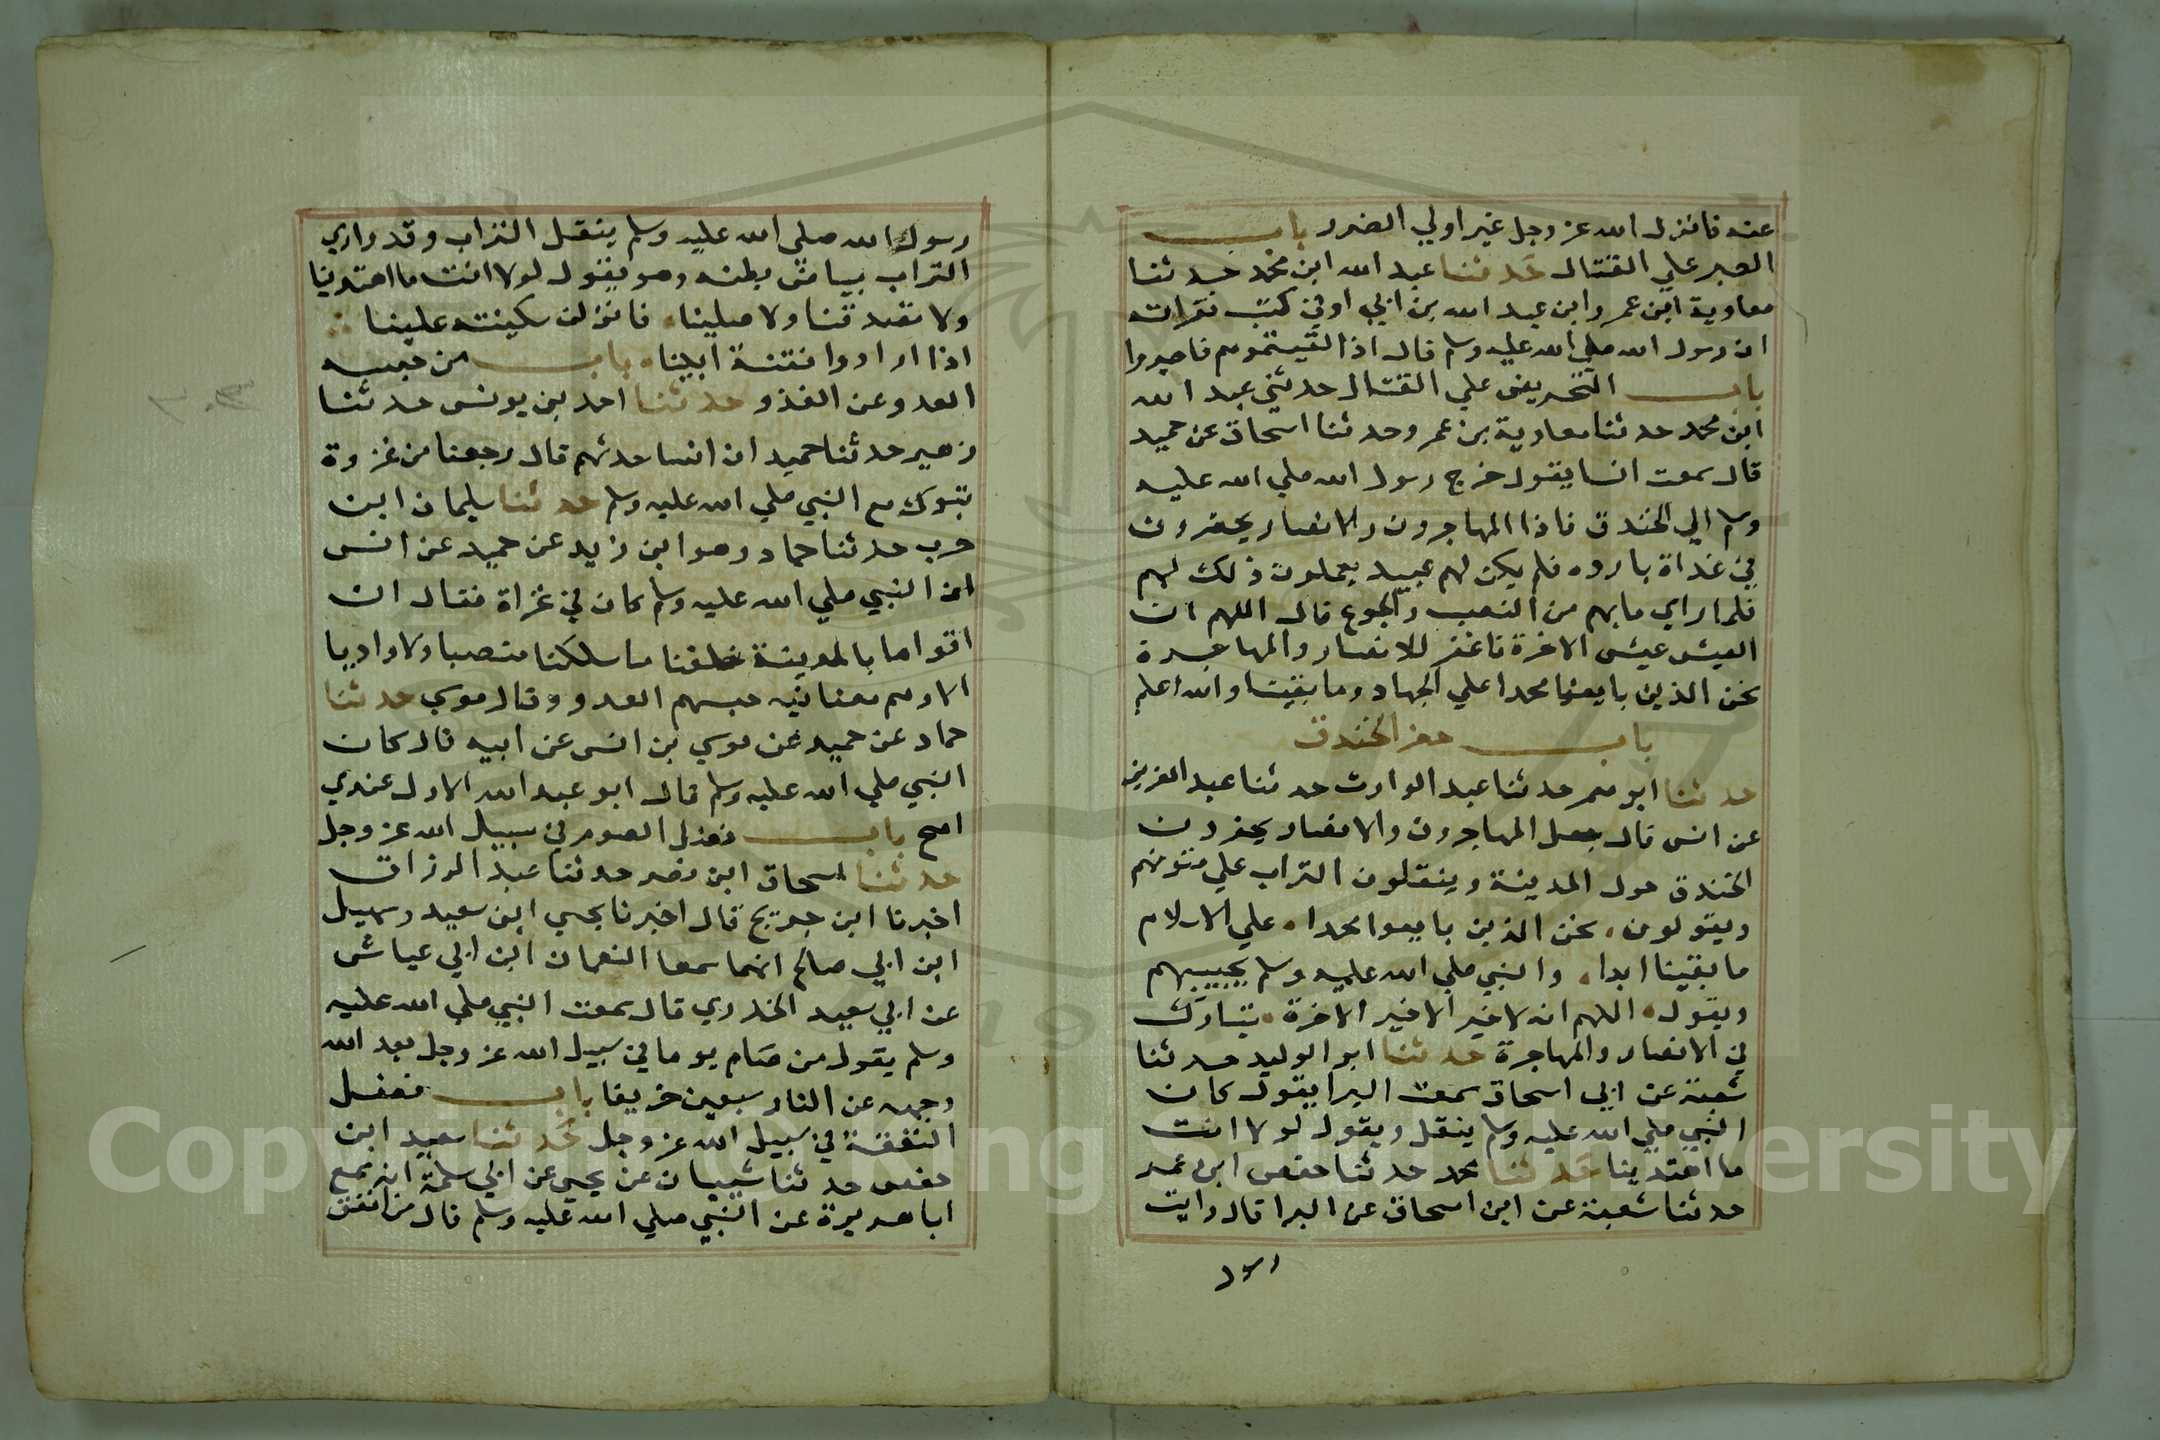 عنه فانزل الله عز وجل غير اولي الضرر باب
الصبر علي القتال حدثنا عبد الله ابن محمد حدثنا
معاوية ابن عمر وابن عبد الله بن ابي اوفي كتب نقرات
ان رسول الله صلي الله عليه وسلم قال اذا لقيتموهم فاصبروا
باب التحريض علي القتال حدثني عبد الله
ابن محمد حدثنا معاوية بن عمر وحدثنا اسحاق عن حميد
قال سمعت انسا يقول خرج رسول الله صلي الله عليه
وسلم الي الخندق فاذا المهاجرون والانصار يحفرون
في غداة بارده فلم يكن لهم عبيد يعملون ذلك لهم
فلما راي ما بهم من النصب والجوع قال اللهم ان
العيش عيش الاخرة فاغفر للانصار والمهاجرة
نحن الذين بايعوا محمدا علي الجهاد وما بقينا والله اعلم
باب حفر الخندق
حدثنا ابو معمر حدثنا عبد الوارث حدثنا عبد العزيز
عن انس قال جعل المهاجرون والانصار يحفرون
الخندق حول المدينة وينقلون التراب علي متونهم
ويقولون نحن الذين بايعوا محمدا علي الاسلام
ما بقينا ابدا والنبي صلي الله عليه وسلم يجيبهم
ويقول اللهم انه لا خير الا خير الاخرة تبارك
في الانصار والمهاجرة حدثنا ابو الوليد حدثنا
شعبة عن ابي اسحاق سمعت البرا يقول كان
النبي صلي الله عليه وسلم ينقل ويقول لولا انت
ما اهتدينا حدثنا محمد حدثنا حفص ابن عمر
حدثنا شعبة عن ابن اسحاق عن البرا قال رايت
رسول الله صلى الله عليه وسلم ينقل التراب وقد واري
التراب بياض بطنه وهو يقول لولا انت ما اهتدينا
ولا تصدقنا ولا صلينا فانزلن سكينته علينا
اذا ارادوا فتنة ابينا باب من حبسه
العدو عن الغذو حدثنا احمد بن يونس حدثنا
زهير حدثنا حميد ان انسا حدثهم قال رجعنا من غزوة
تبوك مع النبي صلي الله عليه وسلم حدثنا سليمان ابن
حرب حدثنا حماد وهو ابن زايد عن حميد عن انس
ان النبي صلي الله عليه وسلم كان في غزاة فقال ان
اقواما بالمدينة خلفنا ما سلكنا منصبا ولا واديا
الا وهم معنا فيه حبسهم العدو وقال موسي حدثنا
حماد عن حميد عن موسي بن انس عن ابيه قال كان
النبي صلي الله عليه وسلم قال ابو عبد الله الاول عندي
اصح باب فضل الصوم في سبيل الله عز وجل
حدثنا اسحاق ابن نصر حدثنا عبد الرزاق
اخبرنا ابن جريج قال اخبرنا يحيي ابن سعيد وسهيل
ابن ابي صالح انهما سمعا النعمان ابن ابي عياش
عن ابي سعيد الخدري قال سمعت النبي صلي الله عليه
وسلم يقول من صام يوما في سبيل الله عز وجل بعد الله
وجهه عن النار سبعين خريفا باب فضل
النفقة في سبيل الله عز وجل حدثنا سعيد ابن
حفص حدثنا شيبان عن يحيي عن ابي سلمة انه سمع
ابا هريرة عن النبي صلي الله عليه وسلم قال من انفق
Copyright © King Saud University